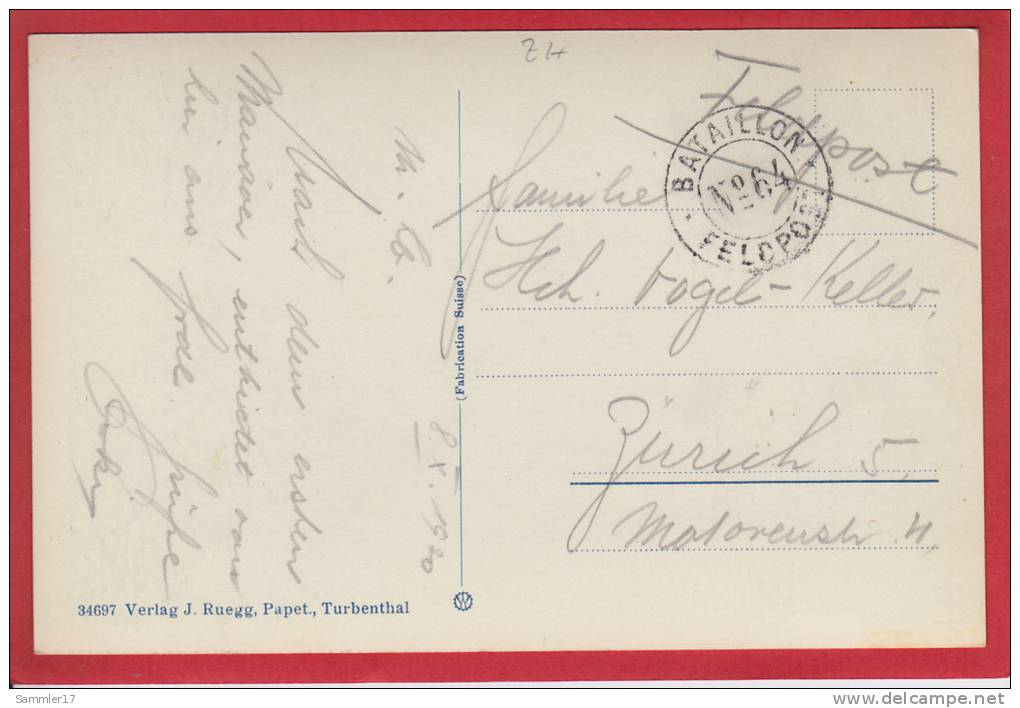 ZH
Feldpost
BATAILLON
No 64
FELDPOST
Familie
Hch. Vogel-Keller,
Zürich 5,
Motorenstr. 4,
M. Lb.
8. X. 1920
Nach dem ersten
Manöver, entbietet von
hier aus frdl. Grüsse
(Fabrication Suisse)
34697 Verlag J. Ruegg, Papet., Turbenthal
W
Sammler17
www.delcampe.net